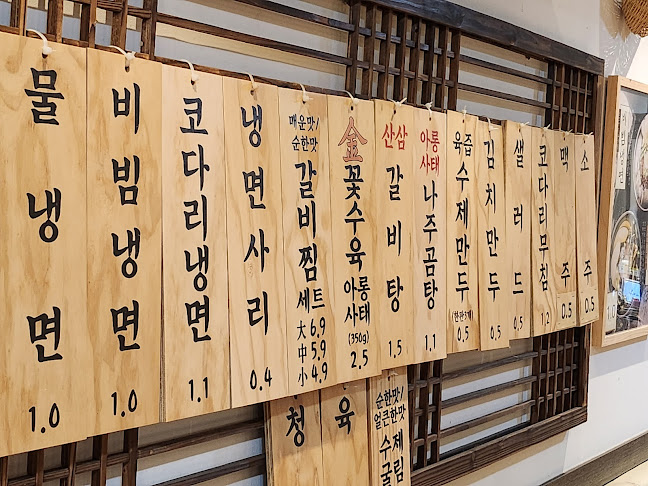 물냉면
1.0
비빔냉면
1.0
코다리냉면
1.1
냉면사리
0.4
매운맛/
순한맛
갈비찜
세트
大 6.9
中 5.9
小 4.9
金
꽃수육
아롱
사태
(350g)
2.5
산삼
갈비탕
1.5
아롱
사태
나주곰탕
1.1
육즙
수제만두
0.5
김치만두
0.5
샐러드
0.5
코다리무침
1.2
맥주
0.5
소주
0.5
청
육
순한맛/
얼큰한맛
수제
굴림
비빔냉면
1.0